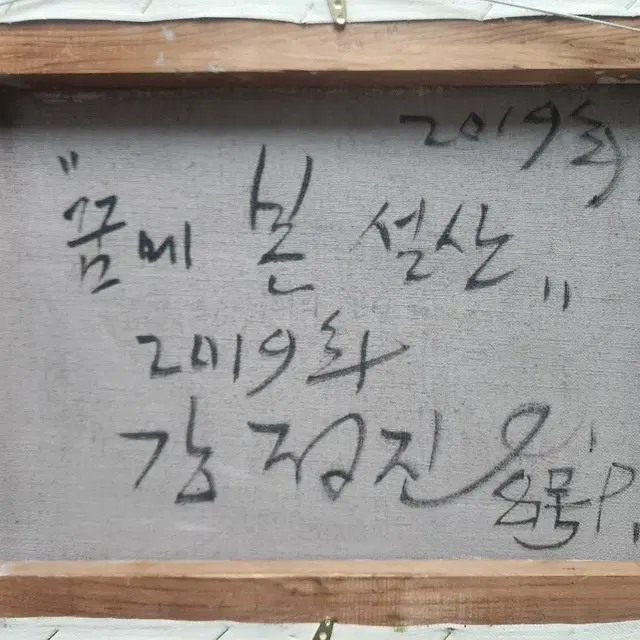 2019화
"꿈에 본 설산"
2019화
강정진